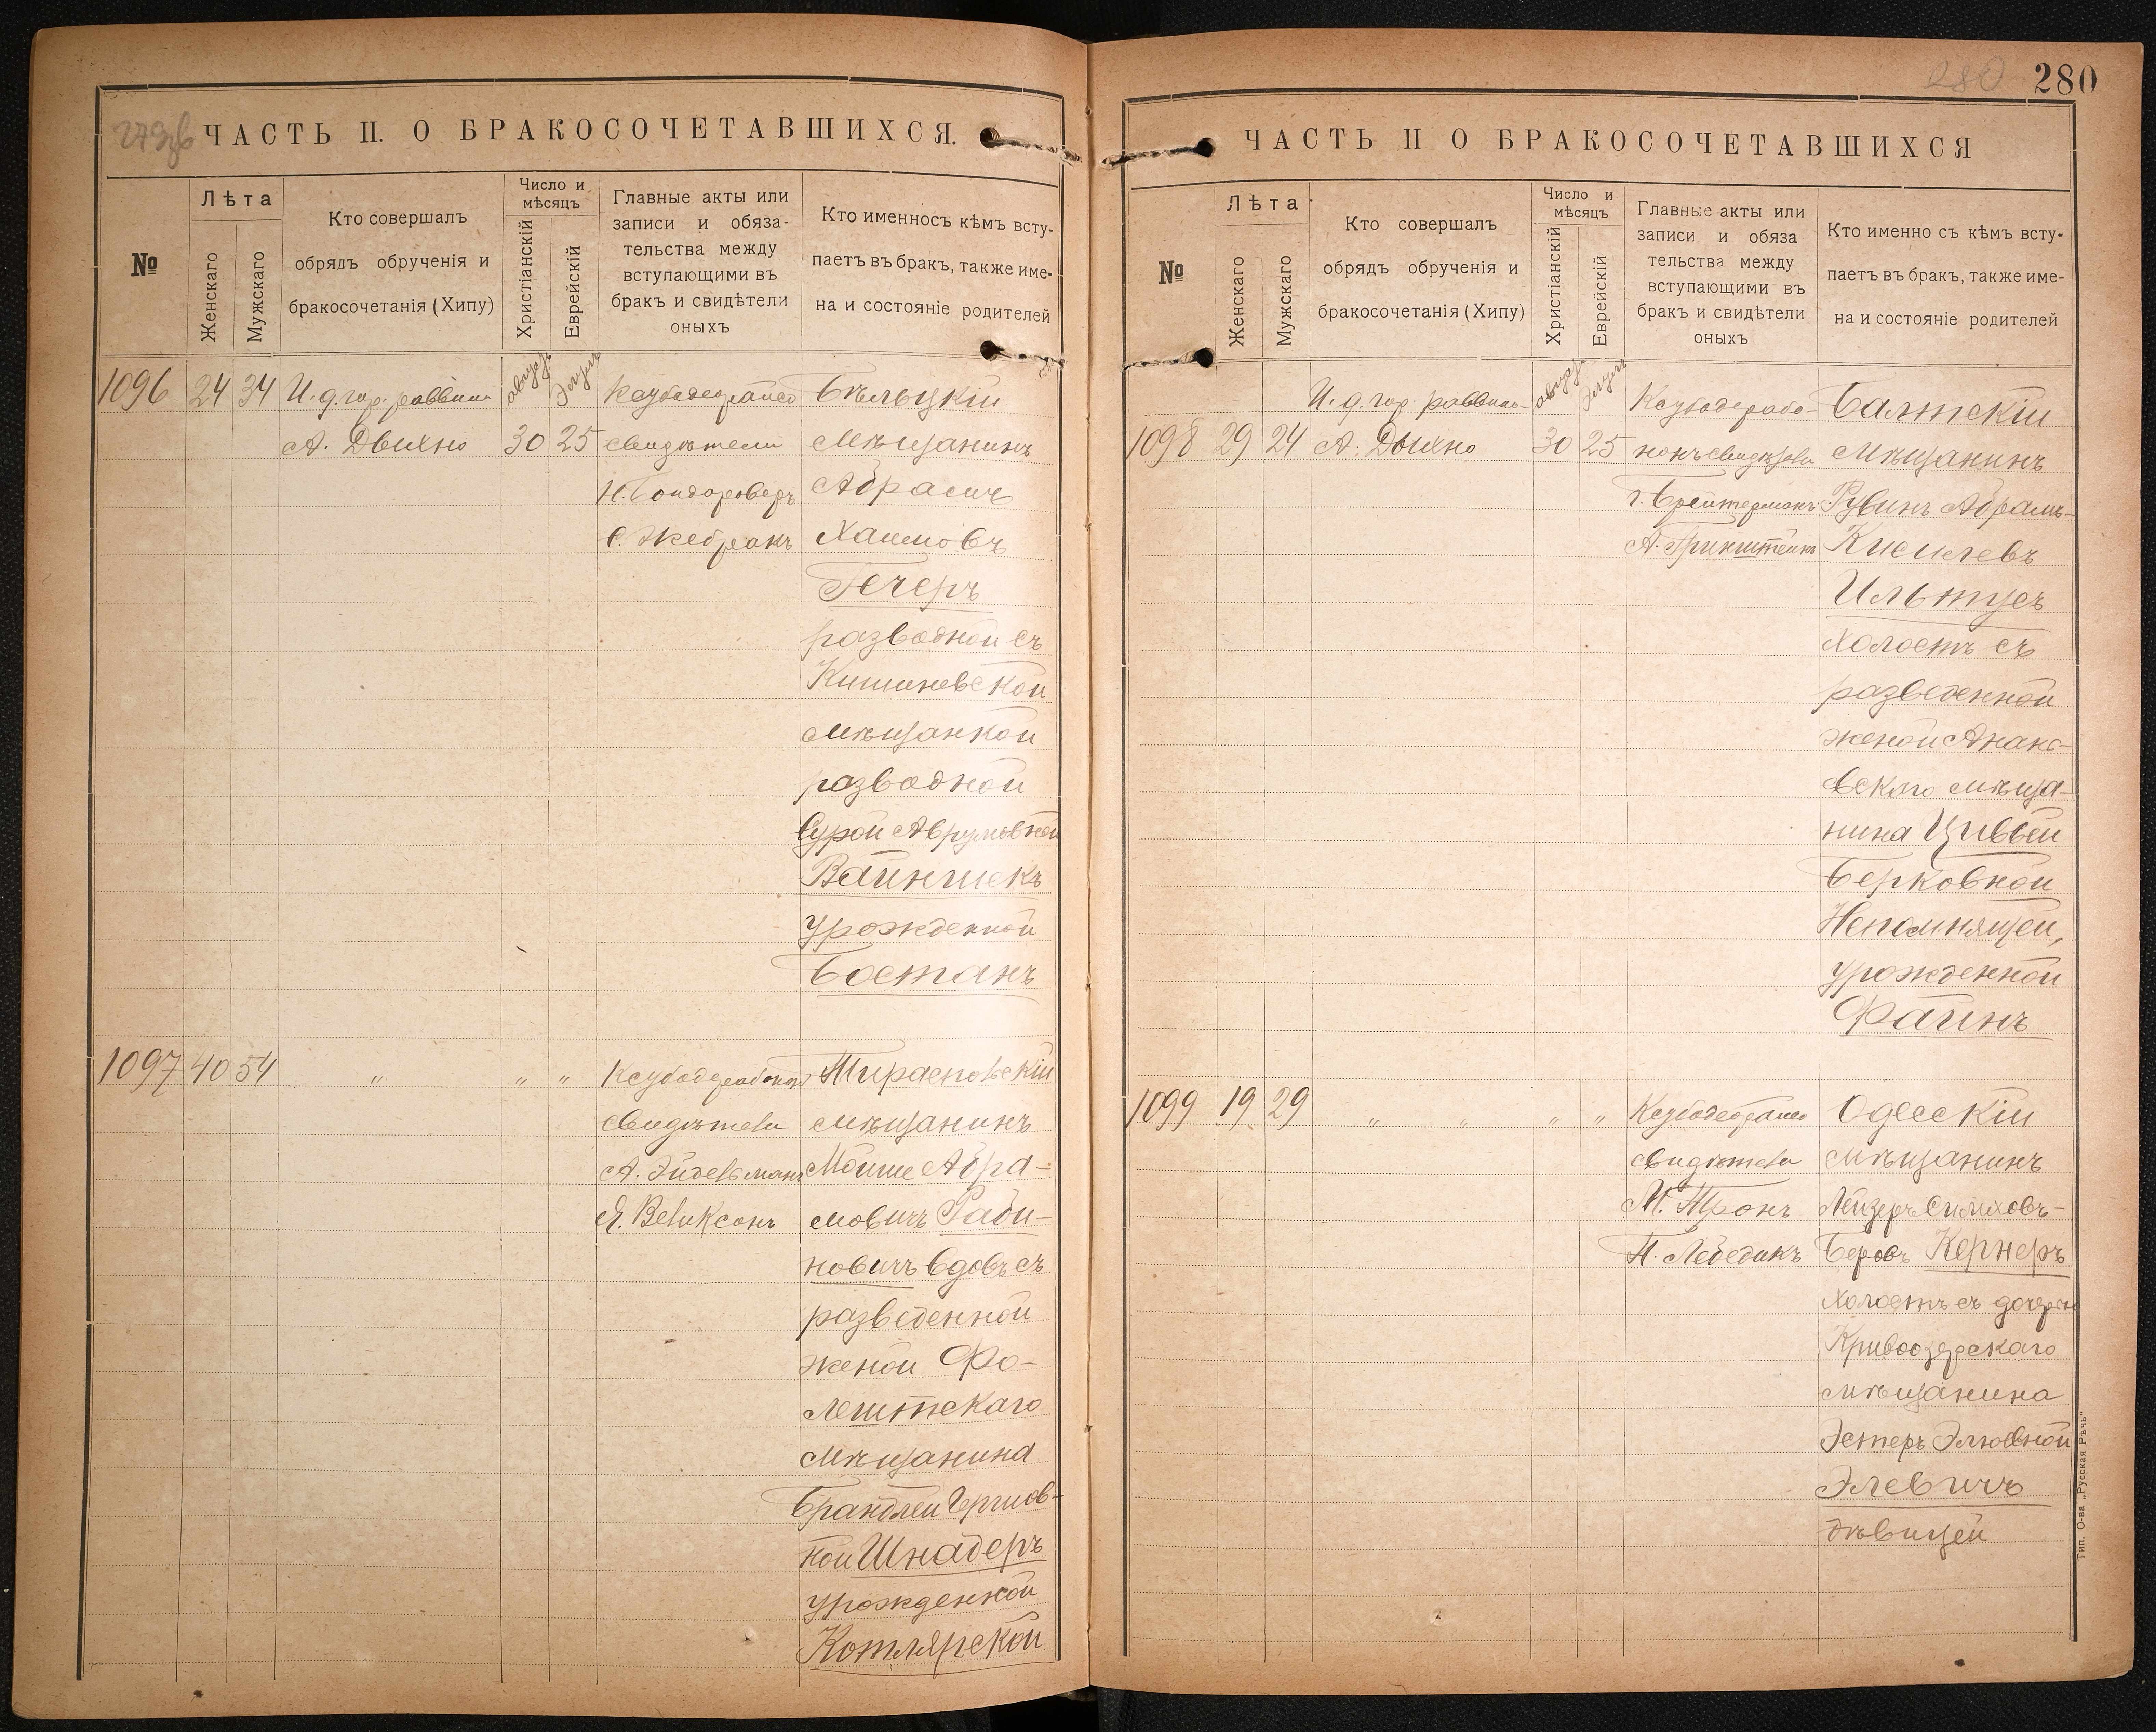 279об
ЧАСТЬ II. О БРАКОСОЧЕТАВШИХСЯ.
№
Лѣта
Женскаго
Мужскаго
Кто совершалъ
обрядъ обрученія и
бракосочетанія (Хипу)
Число и
мѣсяцъ
Христіанскій
Еврейскій
Главные акты или
записи и обяза-
тельства между
вступающими въ
бракъ и свидѣтели
оныхъ
Кто именносъ кѣмъ всту-
паетъ въ бракъ, также име-
на и состояніе родителей
1096 24 34 И. д. гор. раввина
А. Дыхно 30 25
свидѣтели
Бѣльцкій
мѣщанинъ
Абрамъ
Хаимовъ
Гечеръ
разводной съ
Кишиневской
мѣщанкой
разводной
Сурой Аврумовной
Вайншекъ
урожденной
Бостанъ
1097 40 54 „ „ „
свидѣтели
А. Эйдельманъ
Я. Великсонъ
Тираспольскій
мѣщанинъ
Мойше Абра-
мовичъ Раби-
новичъ вдовъ съ
разведенной
женой Фа-
лештскаго
мѣщанина
Брандлей
ной Шнадеръ
урожденной
Котлярской
280
280
ЧАСТЬ II О БРАКОСОЧЕТАВШИХСЯ
№
Лѣта
Женскаго
Мужскаго
Кто совершалъ
обрядъ обрученія и
бракосочетанія (Хипу)
Число и
мѣсяцъ
Христіанскій
Еврейскій
Главные акты или
записи и обяза
тельства между
вступающими въ
бракъ и свидѣтели
оныхъ
Кто именно съ кѣмъ всту-
паетъ въ бракъ, также име-
на и состояніе родителей
И. д. гор. раввина
1098 29 24 А. Дыхно 30 25
Г. Брейтерманъ
А. Гринштейнъ
Балтскій
мѣщанинъ
Рувинъ Абрамъ-
Кисилевъ
Ильтусъ
холостъ съ
разведенной
женой Анань-
евскаго мѣща-
нина Цивьей
Берковной
Непомнящей,
урожденной
Файнъ
1099 19 29 „ „ „ „
свидѣтели
М. Тронъ
Н. Лебедикъ
Одесскій
мѣщанинъ
Лейзеръ Симховъ-
Беровъ Кернеръ
холостъ съ дочерью
Кривоозерскаго
мѣщанина
Эстеръ Элювной
Элевичъ
дѣвицей
Тип. О-ва „Русская Рѣчь“